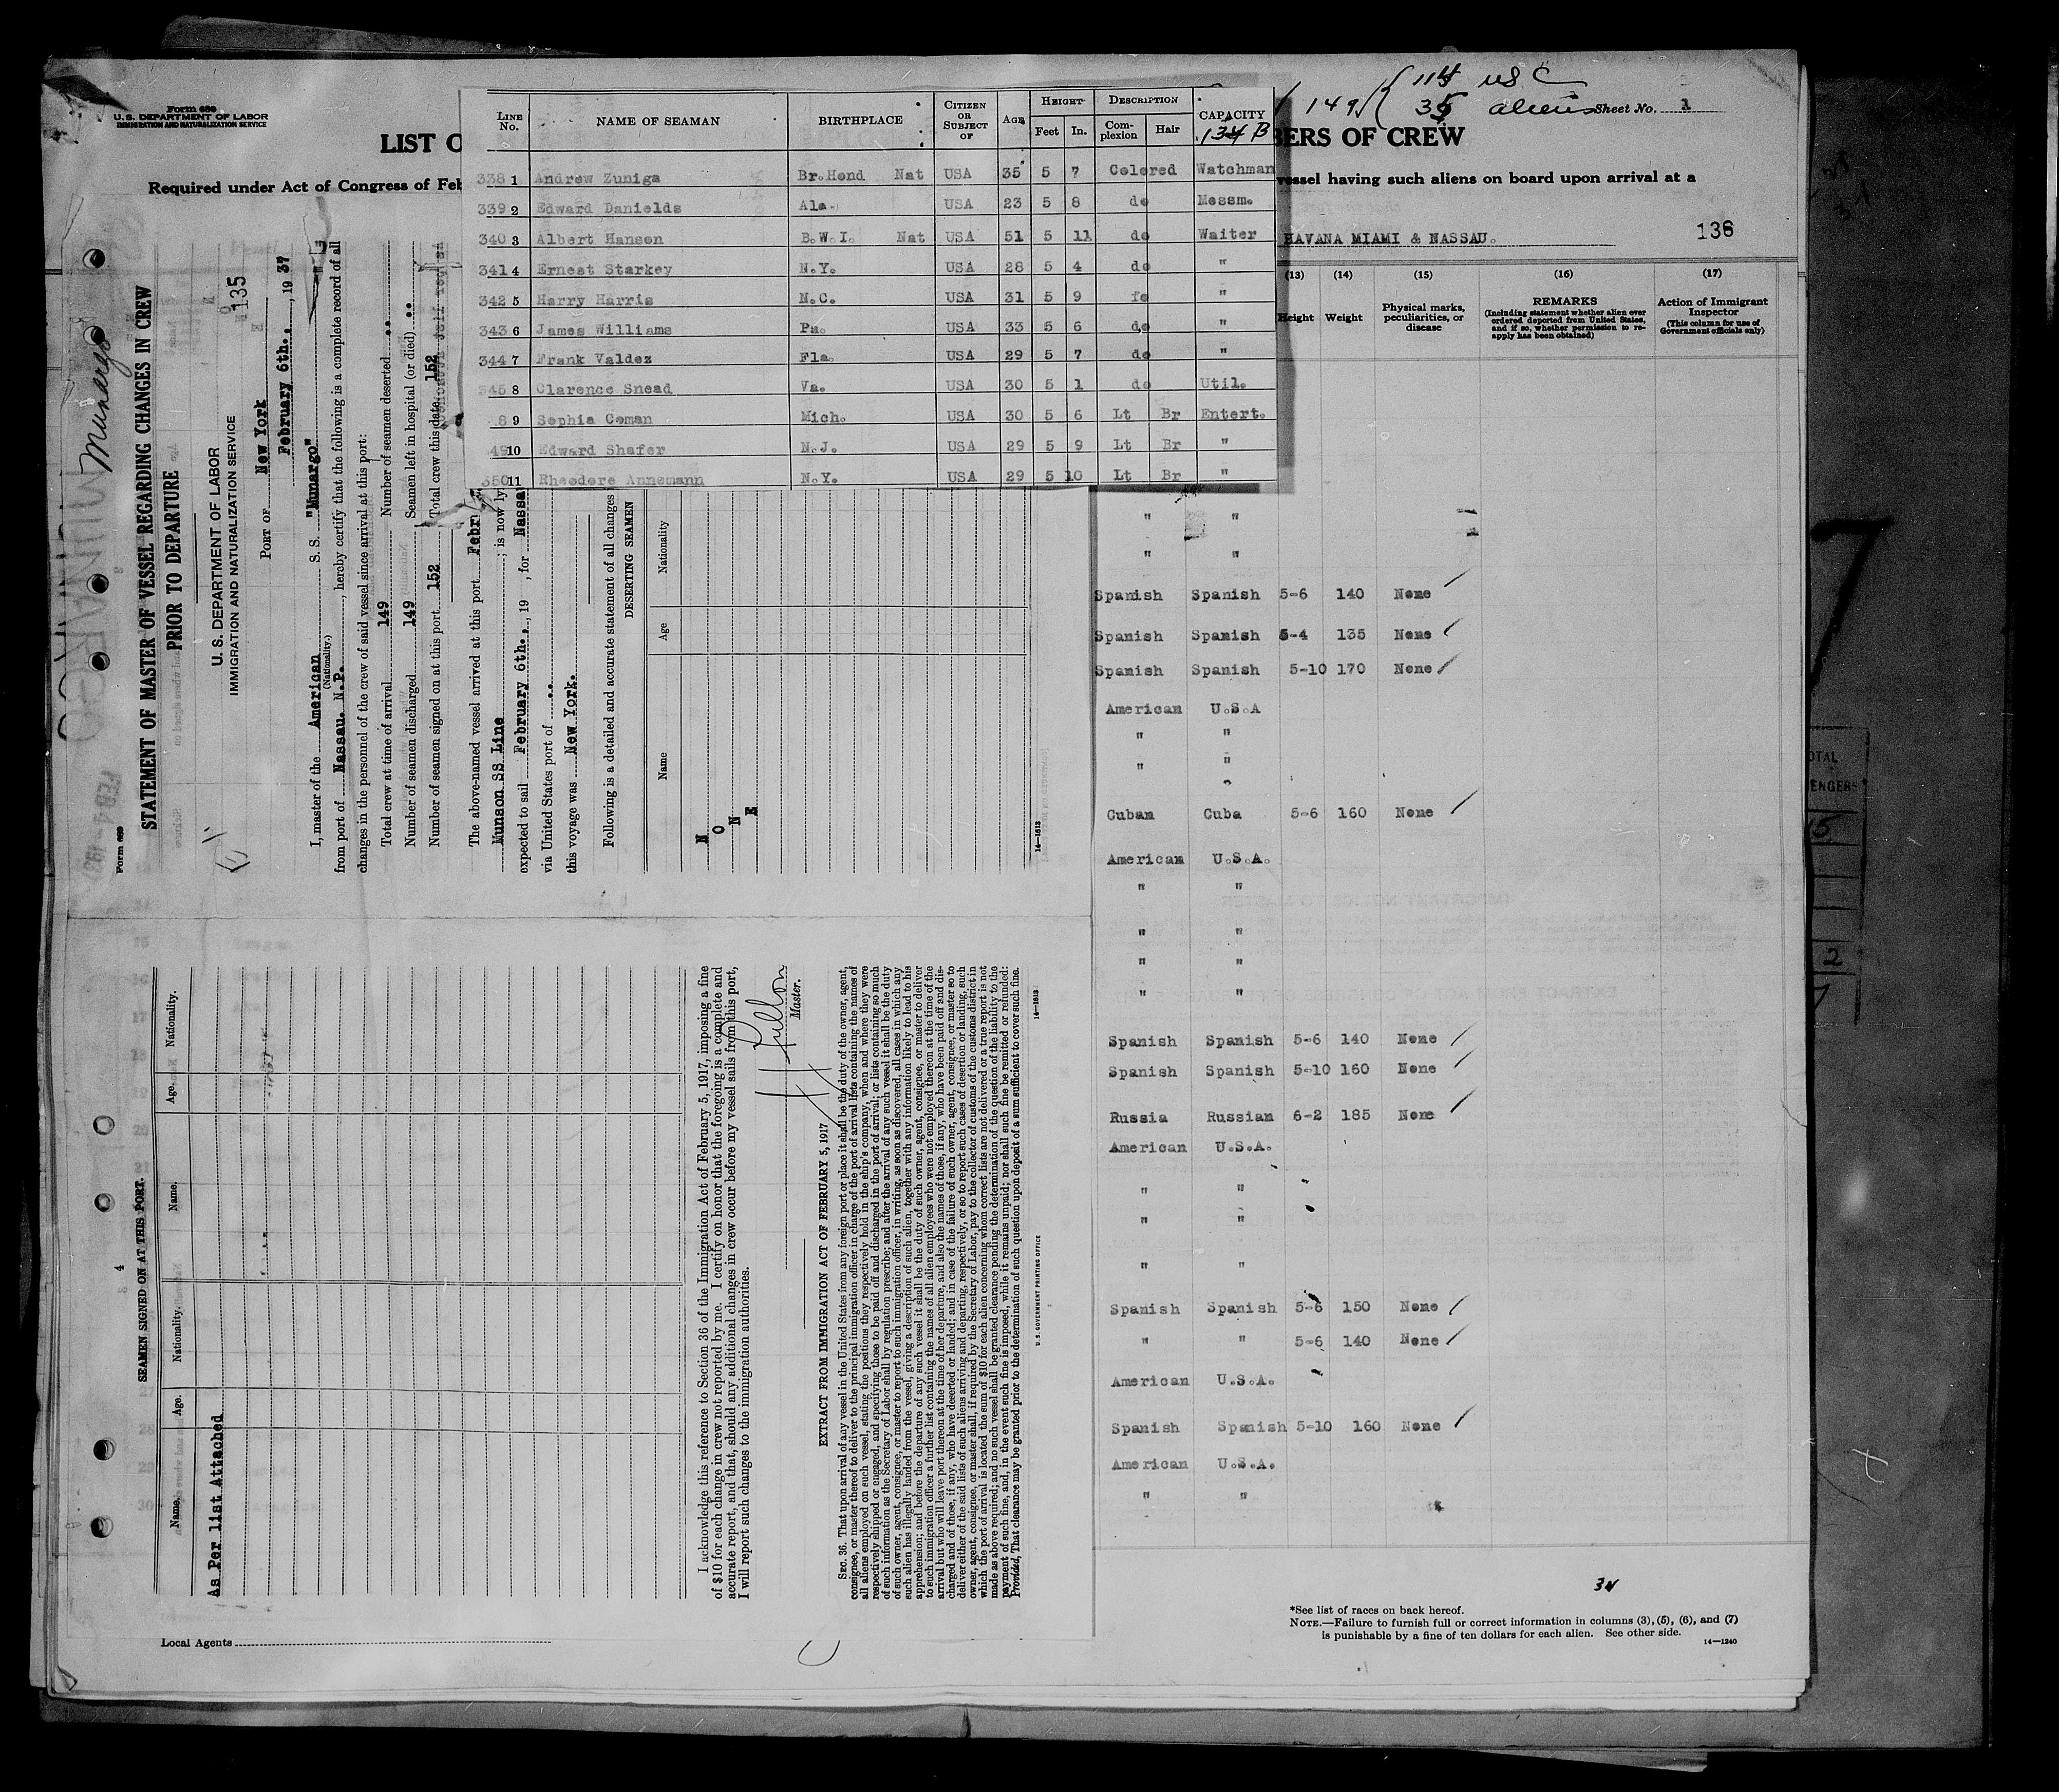 Form 689
U. S. DEPARTMENT OF LABOR
IMMIGRATION AND NATURALIZATION SERVICE
149 { 114 US C
35 aliens
Sheet No. 1
LIST O
BERS OF CREW
Required under Act of Congress of Feb
vessel having such aliens on board upon arrival at a
HAVANA MIAMI & NASSAU.
136
LINE No. NAME OF SEAMAN BIRTHPLACE CITIZEN OR SUBJECT OF AGE HEIGHT Feet In. DESCRIPTION Complexion Hair CAPACITY
134 B
338 1 Andrew Zuniga Br.Hond Nat USA 35 5 7 Colored Watchman
339 2 Edward Danields Ala. USA 23 5 8 do Messm.
340 3 Albert Hanson B.W.I. Nat USA 51 5 11 do Waiter
341 4 Ernest Starkey N.Y. USA 28 5 4 do "
342 5 Harry Harris N.C. USA 31 5 9 fo "
343 6 James Williams Pa. USA 33 5 6 do "
344 7 Frank Valdez Fla. USA 29 5 7 do "
345 8 Clarence Snead Va. USA 30 5 1 do Util.
8 9 Sophia Coman Mich. USA 30 5 6 Lt Br Entert.
49 10 Edward Shafer N.J. USA 29 5 9 Lt Br "
350 11 Rheodore Annemann N.Y. USA 29 5 10 Lt Br "
(13) (14) (15) (16) (17)
Height Weight Physical marks, peculiarities, or disease
REMARKS
(Including statement whether alien ever ordered deported from United States, and if so, whether permission to reapply has been obtained)
Action of Immigrant Inspector
(This column for use of Government officials only)
" "
" "
Spanish Spanish 5-6 140 None
Spanish Spanish 5-4 135 None
Spanish Spanish 5-10 170 None
American U.S.A
" "
" "
Cuban Cuba 5-6 160 None
American U.S.A.
" "
" "
" "
" "
Spanish Spanish 5-6 140 None
Spanish Spanish 5-10 160 None
Russia Russian 6-2 185 None
American U.S.A.
" "
" "
" "
Spanish Spanish 5-6 150 None
" " 5-6 140 None
American U.S.A.
Spanish Spanish 5-10 160 None
American U.S.A.
" "
34
*See list of races on back hereof.
NOTE.—Failure to furnish full or correct information in columns (3), (5), (6), and (7)
is punishable by a fine of ten dollars for each alien. See other side.
14—1240
Munargo
Form 689
STATEMENT OF MASTER OF VESSEL REGARDING CHANGES IN CREW
PRIOR TO DEPARTURE
U. S. DEPARTMENT OF LABOR
IMMIGRATION AND NATURALIZATION SERVICE
135
PORT OF New York
February 6th., 19 37
I, master of the American S. S. "Munargo"
(Nationality.)
from port of Nassau. N.P., hereby certify that the following is a complete record of all
changes in the personnel of the crew of said vessel since arrival at this port:
Total crew at time of arrival 149 Number of seamen deserted ..
Number of seamen discharged 149 Seamen left in hospital (or died) ..
Number of seamen signed on at this port 152 Total crew this date 152
The above-named vessel arrived at this port Febr
Munson SS Line ; is now ly
expected to sail February 6th., 19 , for Nassa
via United States port of ..
this voyage was New York.
Following is a detailed and accurate statement of all changes
DESERTING SEAMEN
Name Age Nationality
N O N E
14—1613
4
SEAMEN SIGNED ON AT THIS PORT.
Name. Age. Nationality. Name. Age. Nationality.
As Per list Attached
I acknowledge this reference to Section 36 of the Immigration Act of February 5, 1917, imposing a fine
of $10 for each change in crew not reported by me. I certify on honor that the foregoing is a complete and
accurate report, and that, should any additional changes in crew occur before my vessel sails from this port,
I will report such changes to the immigration authorities.
Master.
EXTRACT FROM IMMIGRATION ACT OF FEBRUARY 5, 1917
SEC. 36. That upon arrival of any vessel in the United States from any foreign port or place it shall be the duty of the owner, agent,
consignee, or master thereof to deliver to the principal immigration officer in charge of the port of arrival lists containing the names of
all aliens employed on such vessel, stating the positions they respectively hold in the ship's company, when and where they were
respectively shipped or engaged, and specifying those to be paid off and discharged in the port of arrival; or lists containing so much
of such information as the Secretary of Labor shall by regulation prescribe; and after the arrival of any such vessel it shall be the duty
of such owner, agent, consignee, or master to report to such immigration officer, in writing, as soon as discovered, all cases in which any
such alien has illegally landed from the vessel, giving a description of such alien, together with any information likely to lead to his
apprehension; and before the departure of any such vessel it shall be the duty of such owner, agent, consignee, or master to deliver
to such immigration officer a further list containing the names of all alien employees who were not employed thereon at the time of the
arrival but who will leave port thereon at the time of her departure, and also the names of those, if any, who have been paid off and dis-
charged and of those, if any, who have deserted or landed; and in case of the failure of such owner, agent, consignee, or master so to
deliver either of the said lists of such aliens arriving and departing, respectively, or so to report such cases of desertion or landing, such
owner, agent, consignee, or master shall, if required by the Secretary of Labor, pay to the collector of customs of the customs district in
which the port of arrival is located the sum of $10 for each alien concerning whom correct lists are not delivered or a true report is not
made as above required; and no such vessel shall be granted clearance pending the determination of the question of the liability to the
payment of such fine, and, in the event such fine is imposed, while it remains unpaid; nor shall such fine be remitted or refunded:
Provided, That clearance may be granted prior to the determination of such question upon deposit of a sum sufficient to cover such fine.
U. S. GOVERNMENT PRINTING OFFICE 14—1613
Local Agents